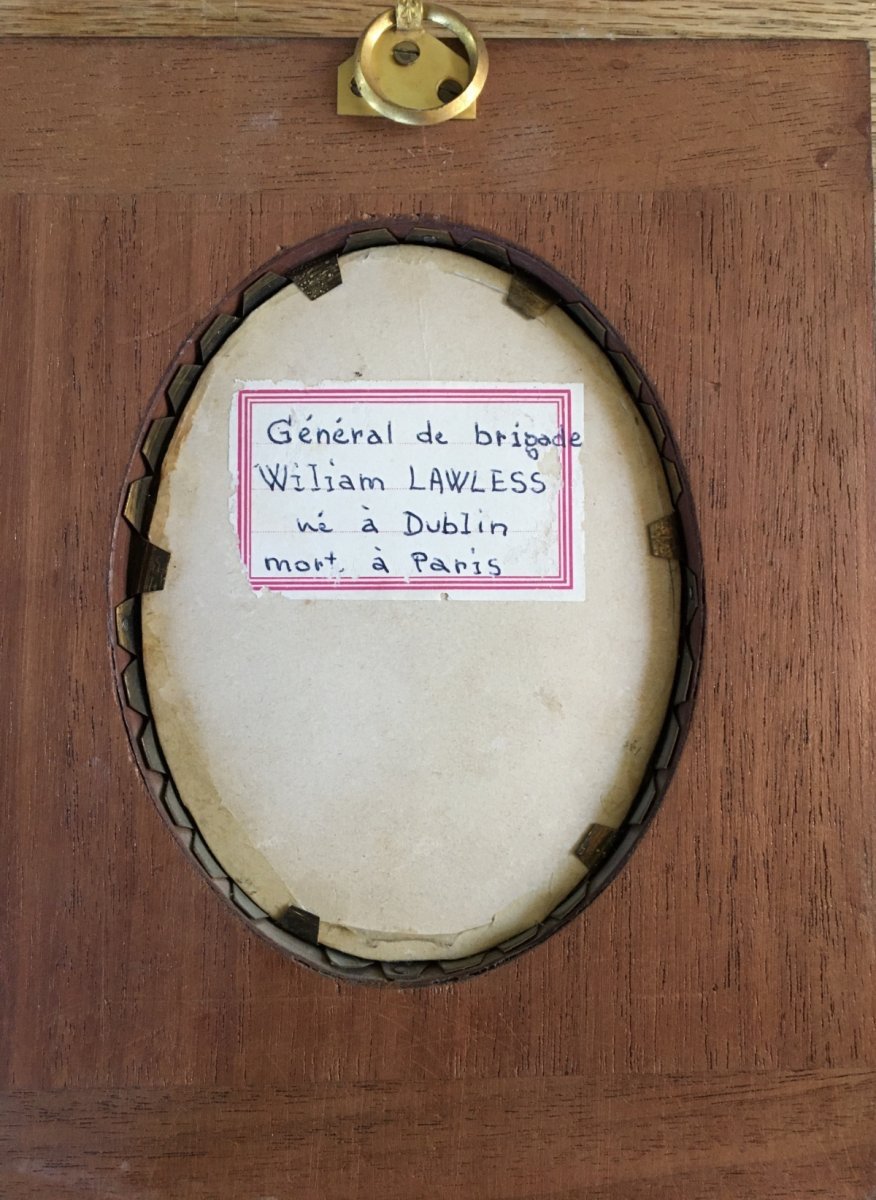 Général de brigade
Wiliam LAWLESS
né à Dublin
mort à Paris